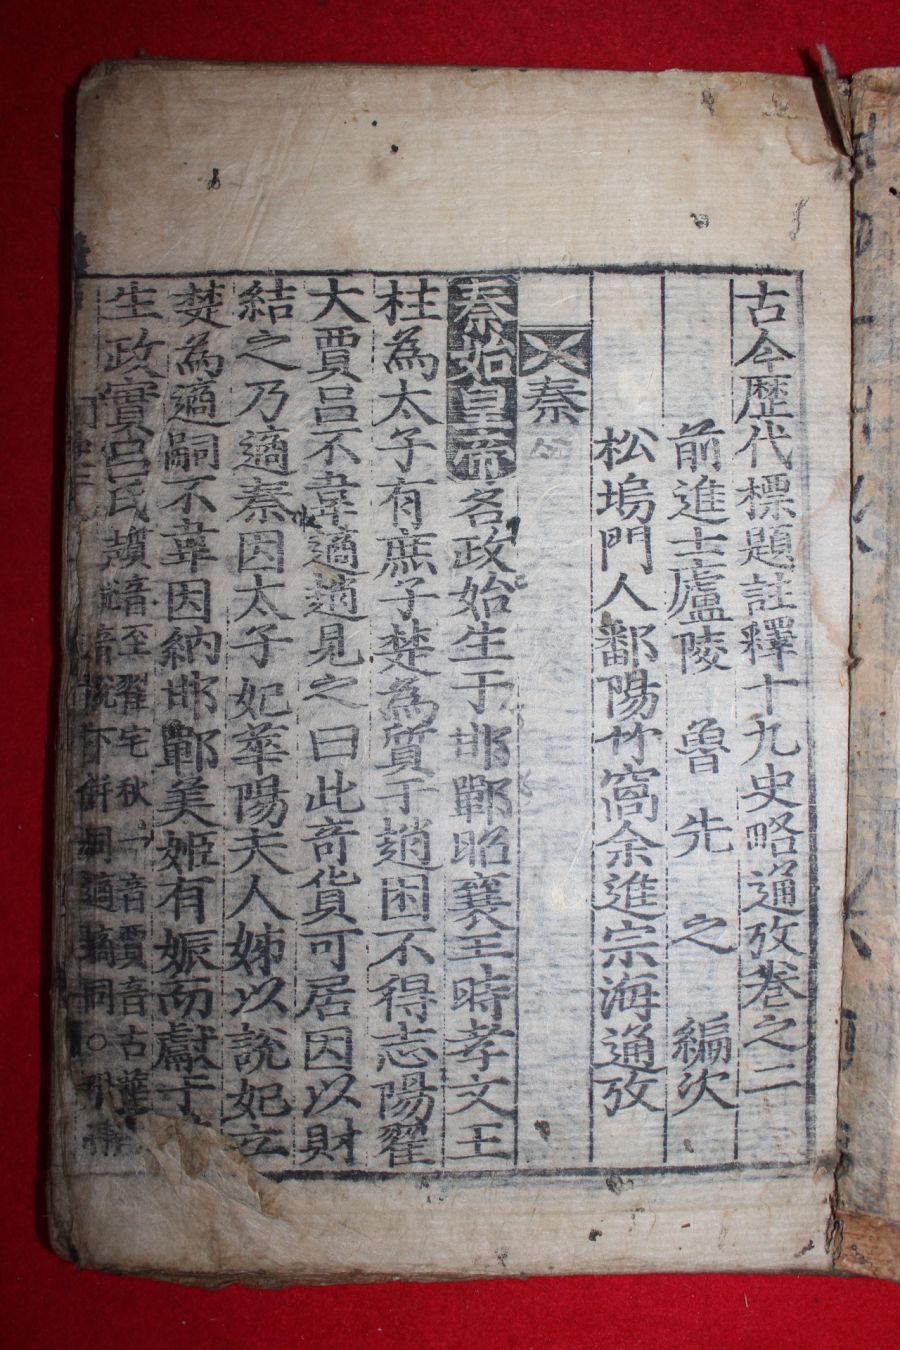 古今歷代標題註釋十九史略通攷卷之二
前進士廬陵 魯 先 之 編次
松塢門人鄱陽竹窩余進宗海通攷
秦
秦始皇帝名政始生于邯鄲昭襄王時孝文王
柱為太子有庶子楚為質于趙困不得志陽翟
大賈呂不韋適趙見之曰此奇貨可居因以財
結之乃適秦因太子妃華陽夫人姊以說妃立
楚為適嗣不韋因納邯鄲美姬有娠而獻于
生政實呂氏 質音至翟宅秋二音賈音古華
音悅下併同適嫡同○